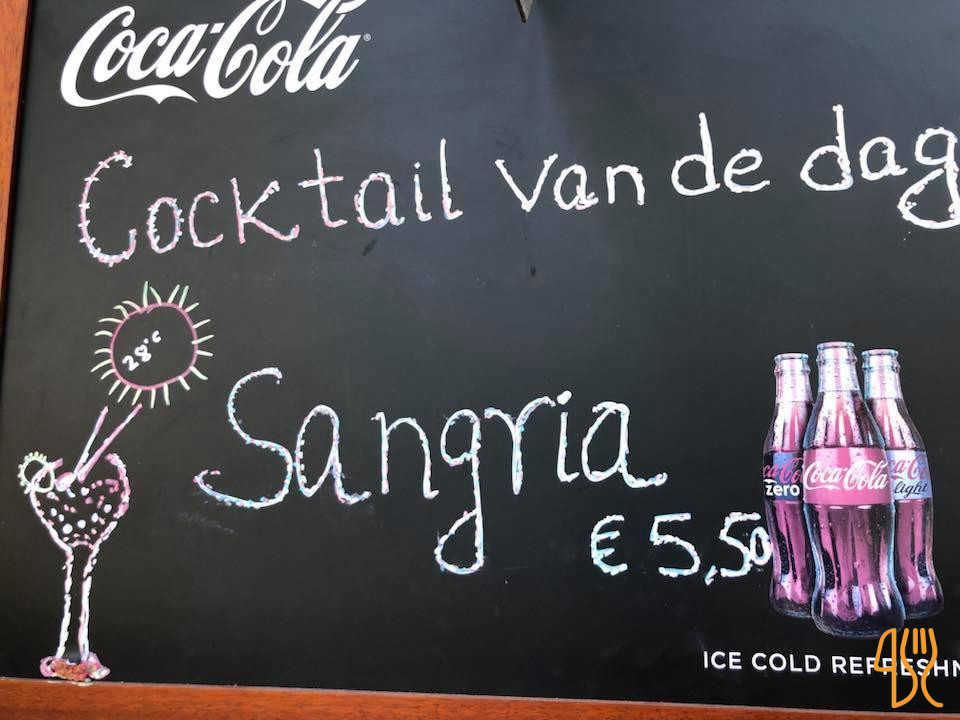 Coca-Cola®
Cocktail van de dag
28°C
Sangria
€ 5,50
Coca-Cola zero
Coca-Cola
Coca-Cola light
ICE COLD REFRESHM